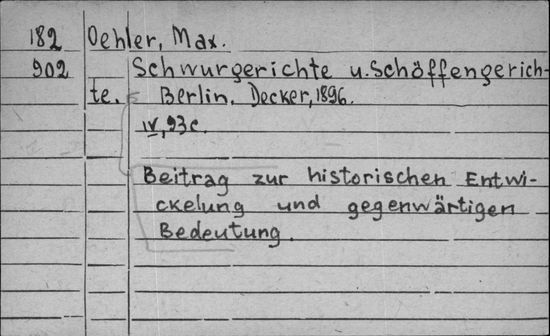 182 Oehler, Max.
902 Schwurgerichte u. Schöffengerich-
te. Berlin, Decker, 1896.
IV, 93 c.
Beitrag zur historischen Entwi-
ckelung und gegenwärtigen
Bedeutung.